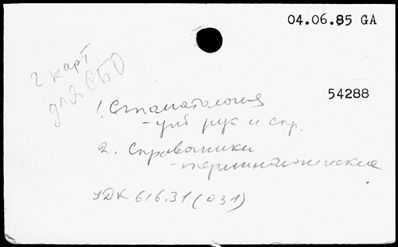 04.06.85 GA
2 карт
для СБО
54288
1 Стоматология
- учеб. рук. и спр.
2. Справочники
- терминологические
УДК 616.31(031)